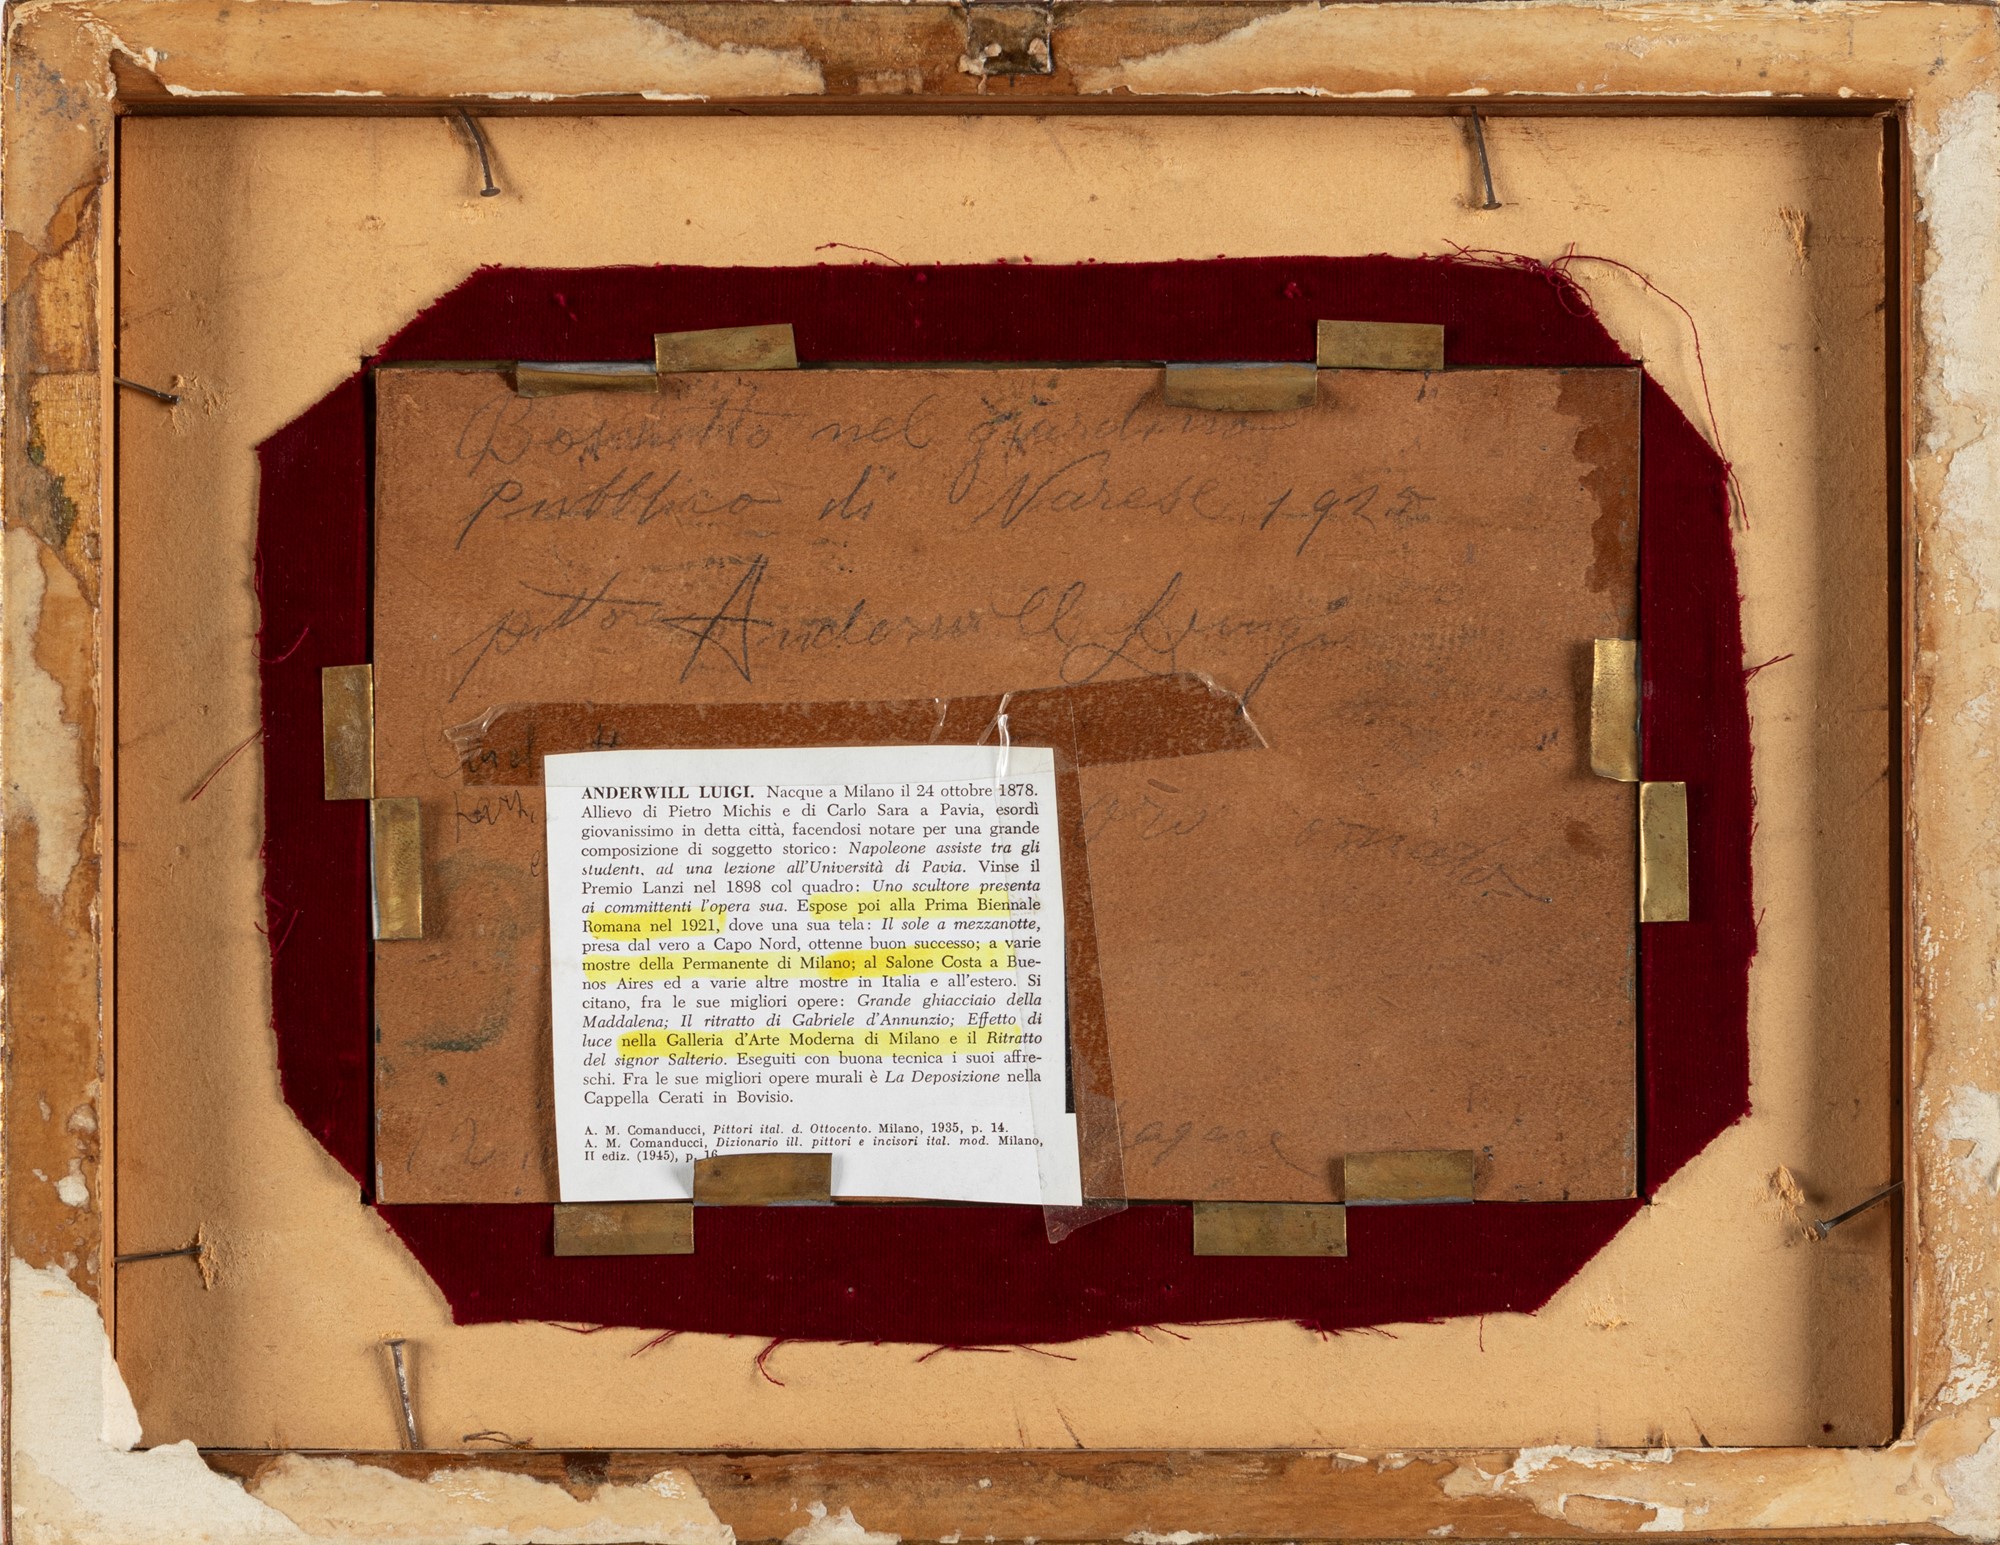 Boschetto nel giardino
pubblico di Varese 192
pittore Anderwill Luigi
ANDERWILL LUIGI. Nacque a Milano il 24 ottobre 1878.
Allievo di Pietro Michis e di Carlo Sara a Pavia, esordì
giovanissimo in detta città, facendosi notare per una grande
composizione di soggetto storico: Napoleone assiste tra gli
studenti, ad una lezione all'Università di Pavia. Vinse il
Premio Lanzi nel 1898 col quadro: Uno scultore presenta
ai committenti l'opera sua. Espose poi alla Prima Biennale
Romana nel 1921, dove una sua tela: Il sole a mezzanotte,
presa dal vero a Capo Nord, ottenne buon successo; a varie
mostre della Permanente di Milano; al Salone Costa a Bue-
nos Aires ed a varie altre mostre in Italia e all'estero. Si
citano, fra le sue migliori opere: Grande ghiacciaio della
Maddalena; Il ritratto di Gabriele d'Annunzio; Effetto di
luce nella Galleria d'Arte Moderna di Milano e il Ritratto
del signor Salterio. Eseguiti con buona tecnica i suoi affre-
schi. Fra le sue migliori opere murali è La Deposizione nella
Cappella Cerati in Bovisio.
A. M. Comanducci, Pittori ital. d. Ottocento. Milano, 1935, p. 14.
A. M. Comanducci, Dizionario ill. pittori e incisori ital. mod. Milano,
II ediz. (1945), p. 16